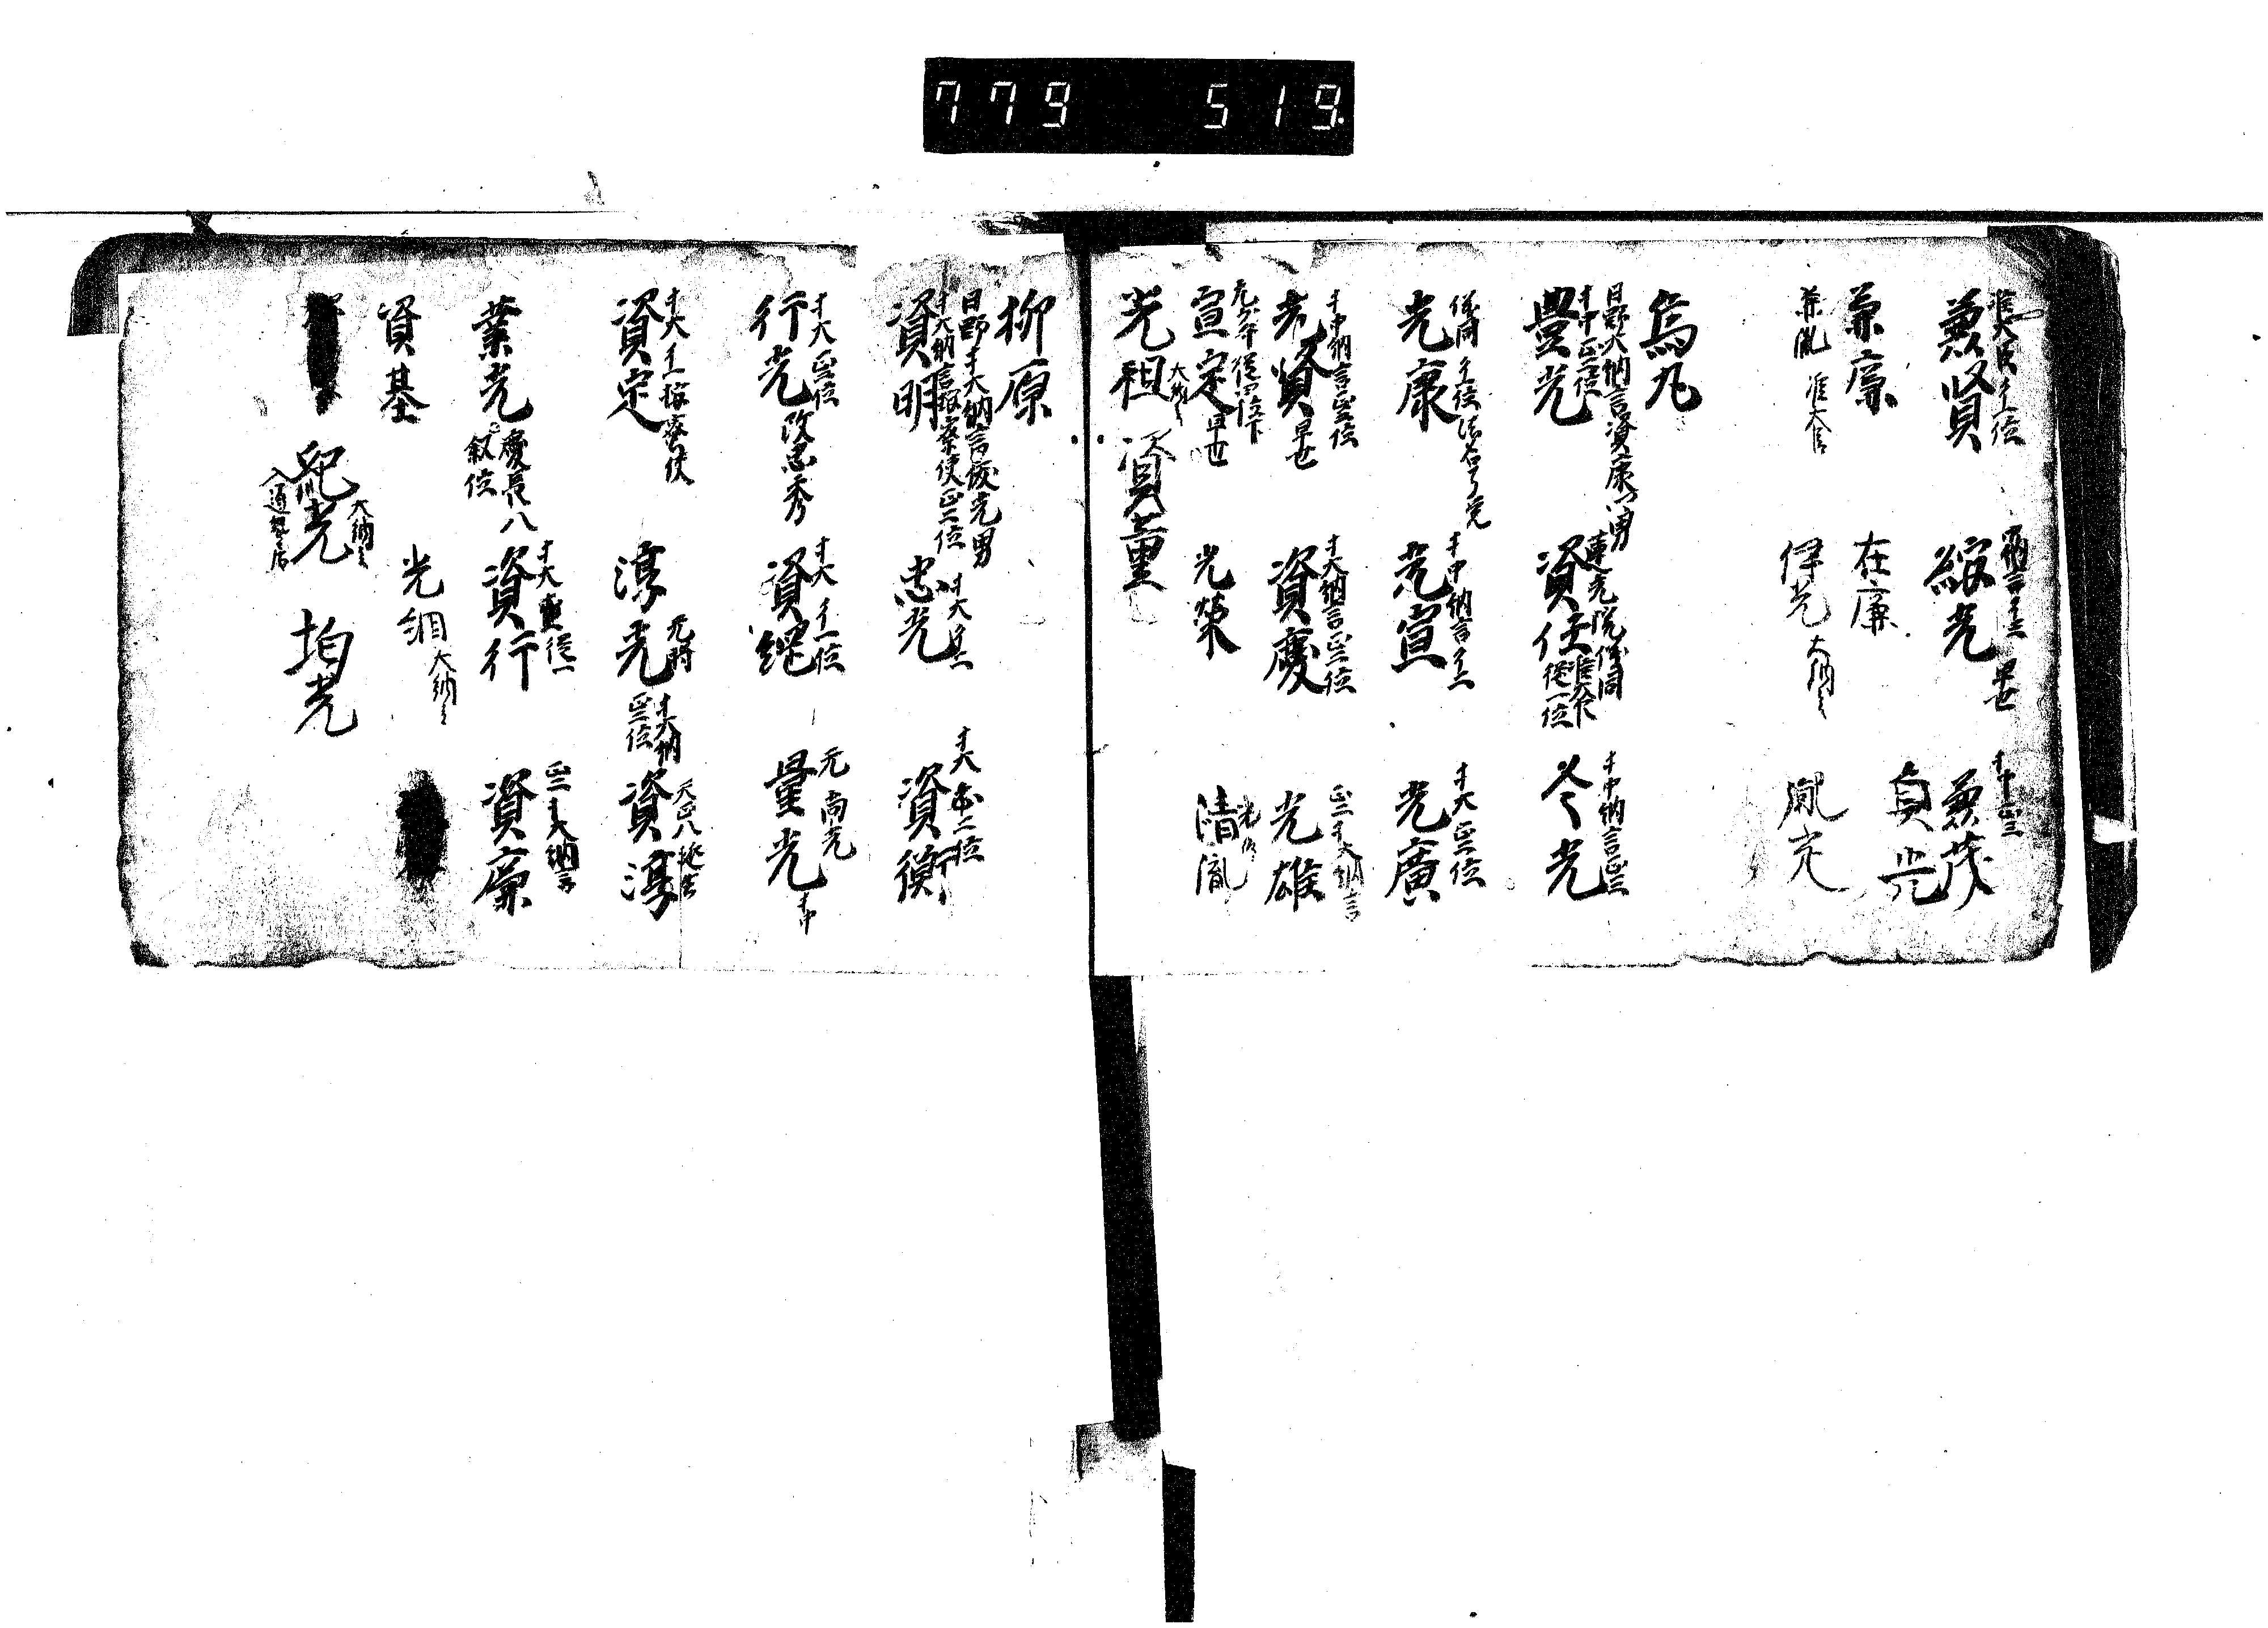 779 519
准大臣 従一位
兼賢
納言 早世
綏光
兼茂
兼廉
在廉
貞光
兼胤 准大臣
伊光 大納言
胤定
烏丸
日野大納言資康 男
豊光
蓮光院 儀同
資任 准大臣 従一位
中納言 正三
冬光
儀同 従一位 法名了覚
光康
中納言
光宣
大 正二位
光廣
中納言 正三位
光賢 早世
大納言 正二位
資慶
正二 大納言
光雄
元六年従四位下
宣定 早世
光栄
清胤
光祖 大納言
資董
柳原
日野 大納言俊光男
大納言 按察使 正二位
資明
忠光
大 二位
資衡
大 正二位
行光 改忠秀
大 一位
資綱
元尚光
量光
大 按察使
資定
淳光 元 大納 正三位
天正八
資淳
業光 慶長八 叙位
大 従一
資行
正三 大納言
資廉
資基
光綱 大納言
紀光 大納言
均光